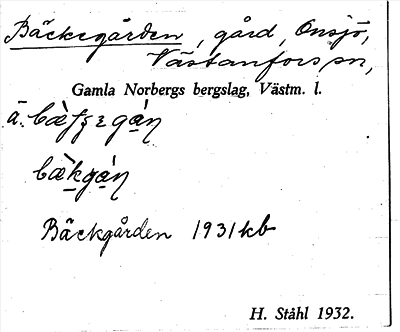 Bäckegården, gård, Onsjö,
Västanfors sn,
Gamla Norbergs bergslag, Västm. l.
ä.
Bäckgården 1931 kb
H. Ståhl 1932.